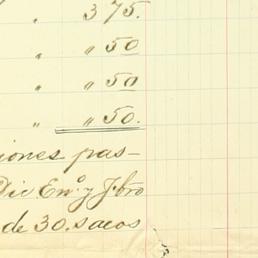 " 3 75.
" " 50
" " 50
" " 50.
iones pas-
Dic En.º y Fbro
de 30. sacos